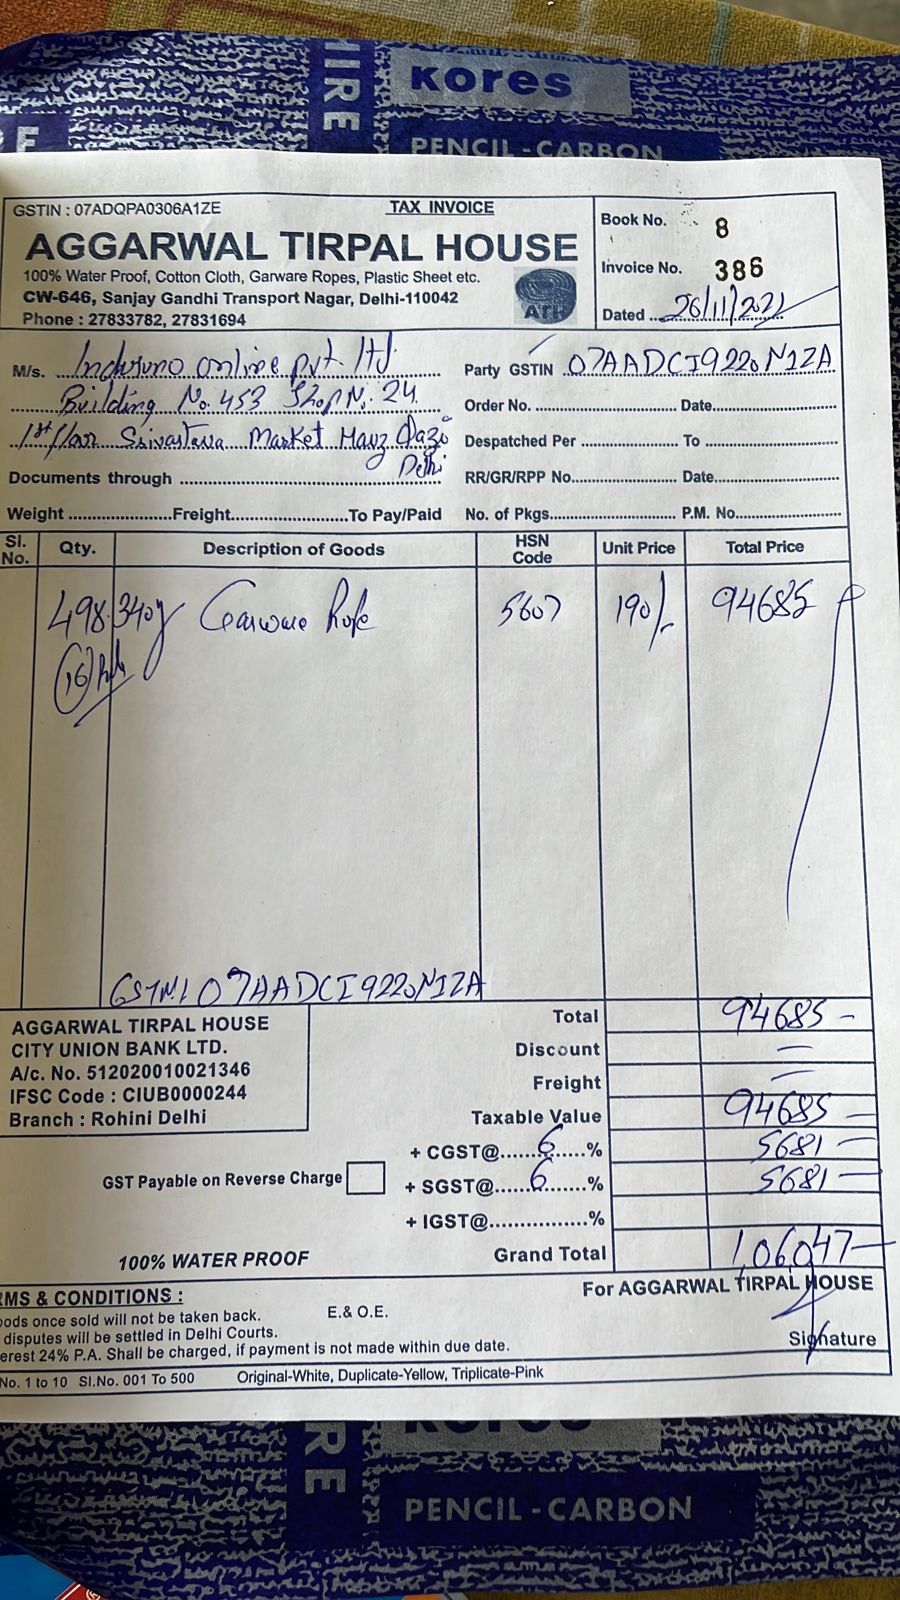 HIRE
Kores
PENCIL-CARBON
GSTIN : 07ADQPA0306A1ZE
TAX INVOICE
AGGARWAL TIRPAL HOUSE
100% Water Proof, Cotton Cloth, Garware Ropes, Plastic Sheet etc.
CW-646, Sanjay Gandhi Transport Nagar, Delhi-110042
Phone : 27833782, 27831694
ATH
Book No. 8
Invoice No. 386
Dated 26/11/2021
M/s. Induruno online pvt. ltd.
Building No. 453 Shop No. 24
1st floor Srivastava Market Hauz Qazi
Delhi
Documents through
Weight Freight To Pay/Paid
Party GSTIN 07AADCI9220N1ZA
Order No. Date
Despatched Per To
RR/GR/RPP No. Date
No. of Pkgs. P.M. No.
Sl. No. Qty. Description of Goods HSN Code Unit Price Total Price
498.340g Garware Rope 5607 190/- 94685
16
GSTN. 07AADCI9220N1ZA
AGGARWAL TIRPAL HOUSE
CITY UNION BANK LTD.
A/c. No. 512020010021346
IFSC Code : CIUB0000244
Branch : Rohini Delhi
Total 94685 -
Discount -
Freight -
Taxable Value 94685 -
+ CGST@ 6 % 5681 -
+ SGST@ 6 % 5681 -
+ IGST@ %
GST Payable on Reverse Charge
Grand Total 1,06,047 -
100% WATER PROOF
For AGGARWAL TIRPAL HOUSE
Signature
RMS & CONDITIONS :
E.& O.E.
oods once sold will not be taken back.
disputes will be settled in Delhi Courts.
erest 24% P.A. Shall be charged, if payment is not made within due date.
No. 1 to 10 Sl.No. 001 To 500 Original-White, Duplicate-Yellow, Triplicate-Pink
PENCIL-CARBON